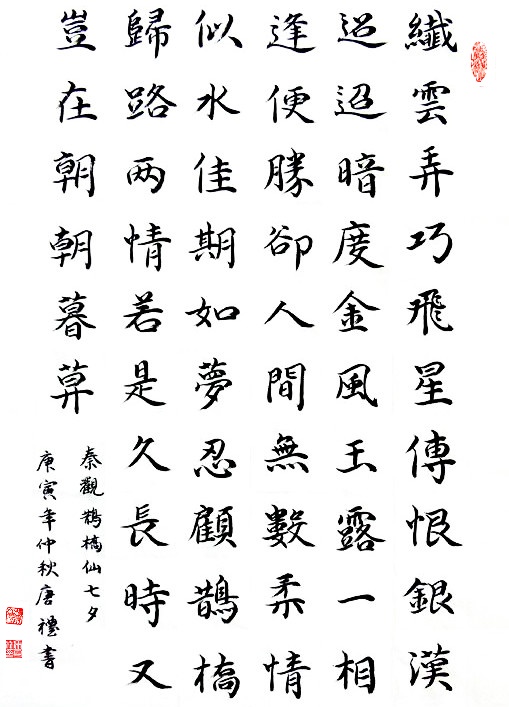 纖雲弄巧飛星傳恨銀漢
迢迢暗度金風玉露一相
逢便勝卻人間無數柔情
似水佳期如夢忍顧鵲橋
歸路两情若是久長時又
豈在朝朝暮暮
秦觀鵲橋仙七夕
庚寅年仲秋唐禮書